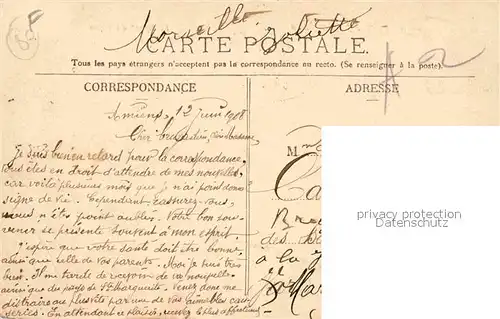 Marseille Joliette
CARTE POSTALE.
Tous les pays étrangers n'acceptent pas la correspondance au recto. (Se renseigner à la poste).
CORRESPONDANCE
ADRESSE
Amiens, 12 Juin 1908
Cher
Je suis bien en retard pour la correspondance,
vous êtes en droit d'attendre de mes nouvelles,
car voilà plusieurs mois que je n'ai point donné
signe de vie. Cependant, rassurez-vous,
vous n'êtes point oublié. Votre bon sou-
venir se présente souvent à mon esprit
J'espère que votre santé doit être bonne
ainsi que celle de vos parents. Moi je suis très
bien. Il me tarde de recevoir de vos nouvelles
ainsi que du pays de Ste Marguerite. Venez donc me
distraire au plus vite par une de vos aimables cau-
series. En attendant ce plaisir, recevez le plus affectueux
M
des
à la J
Mar
privacy protection
watermark